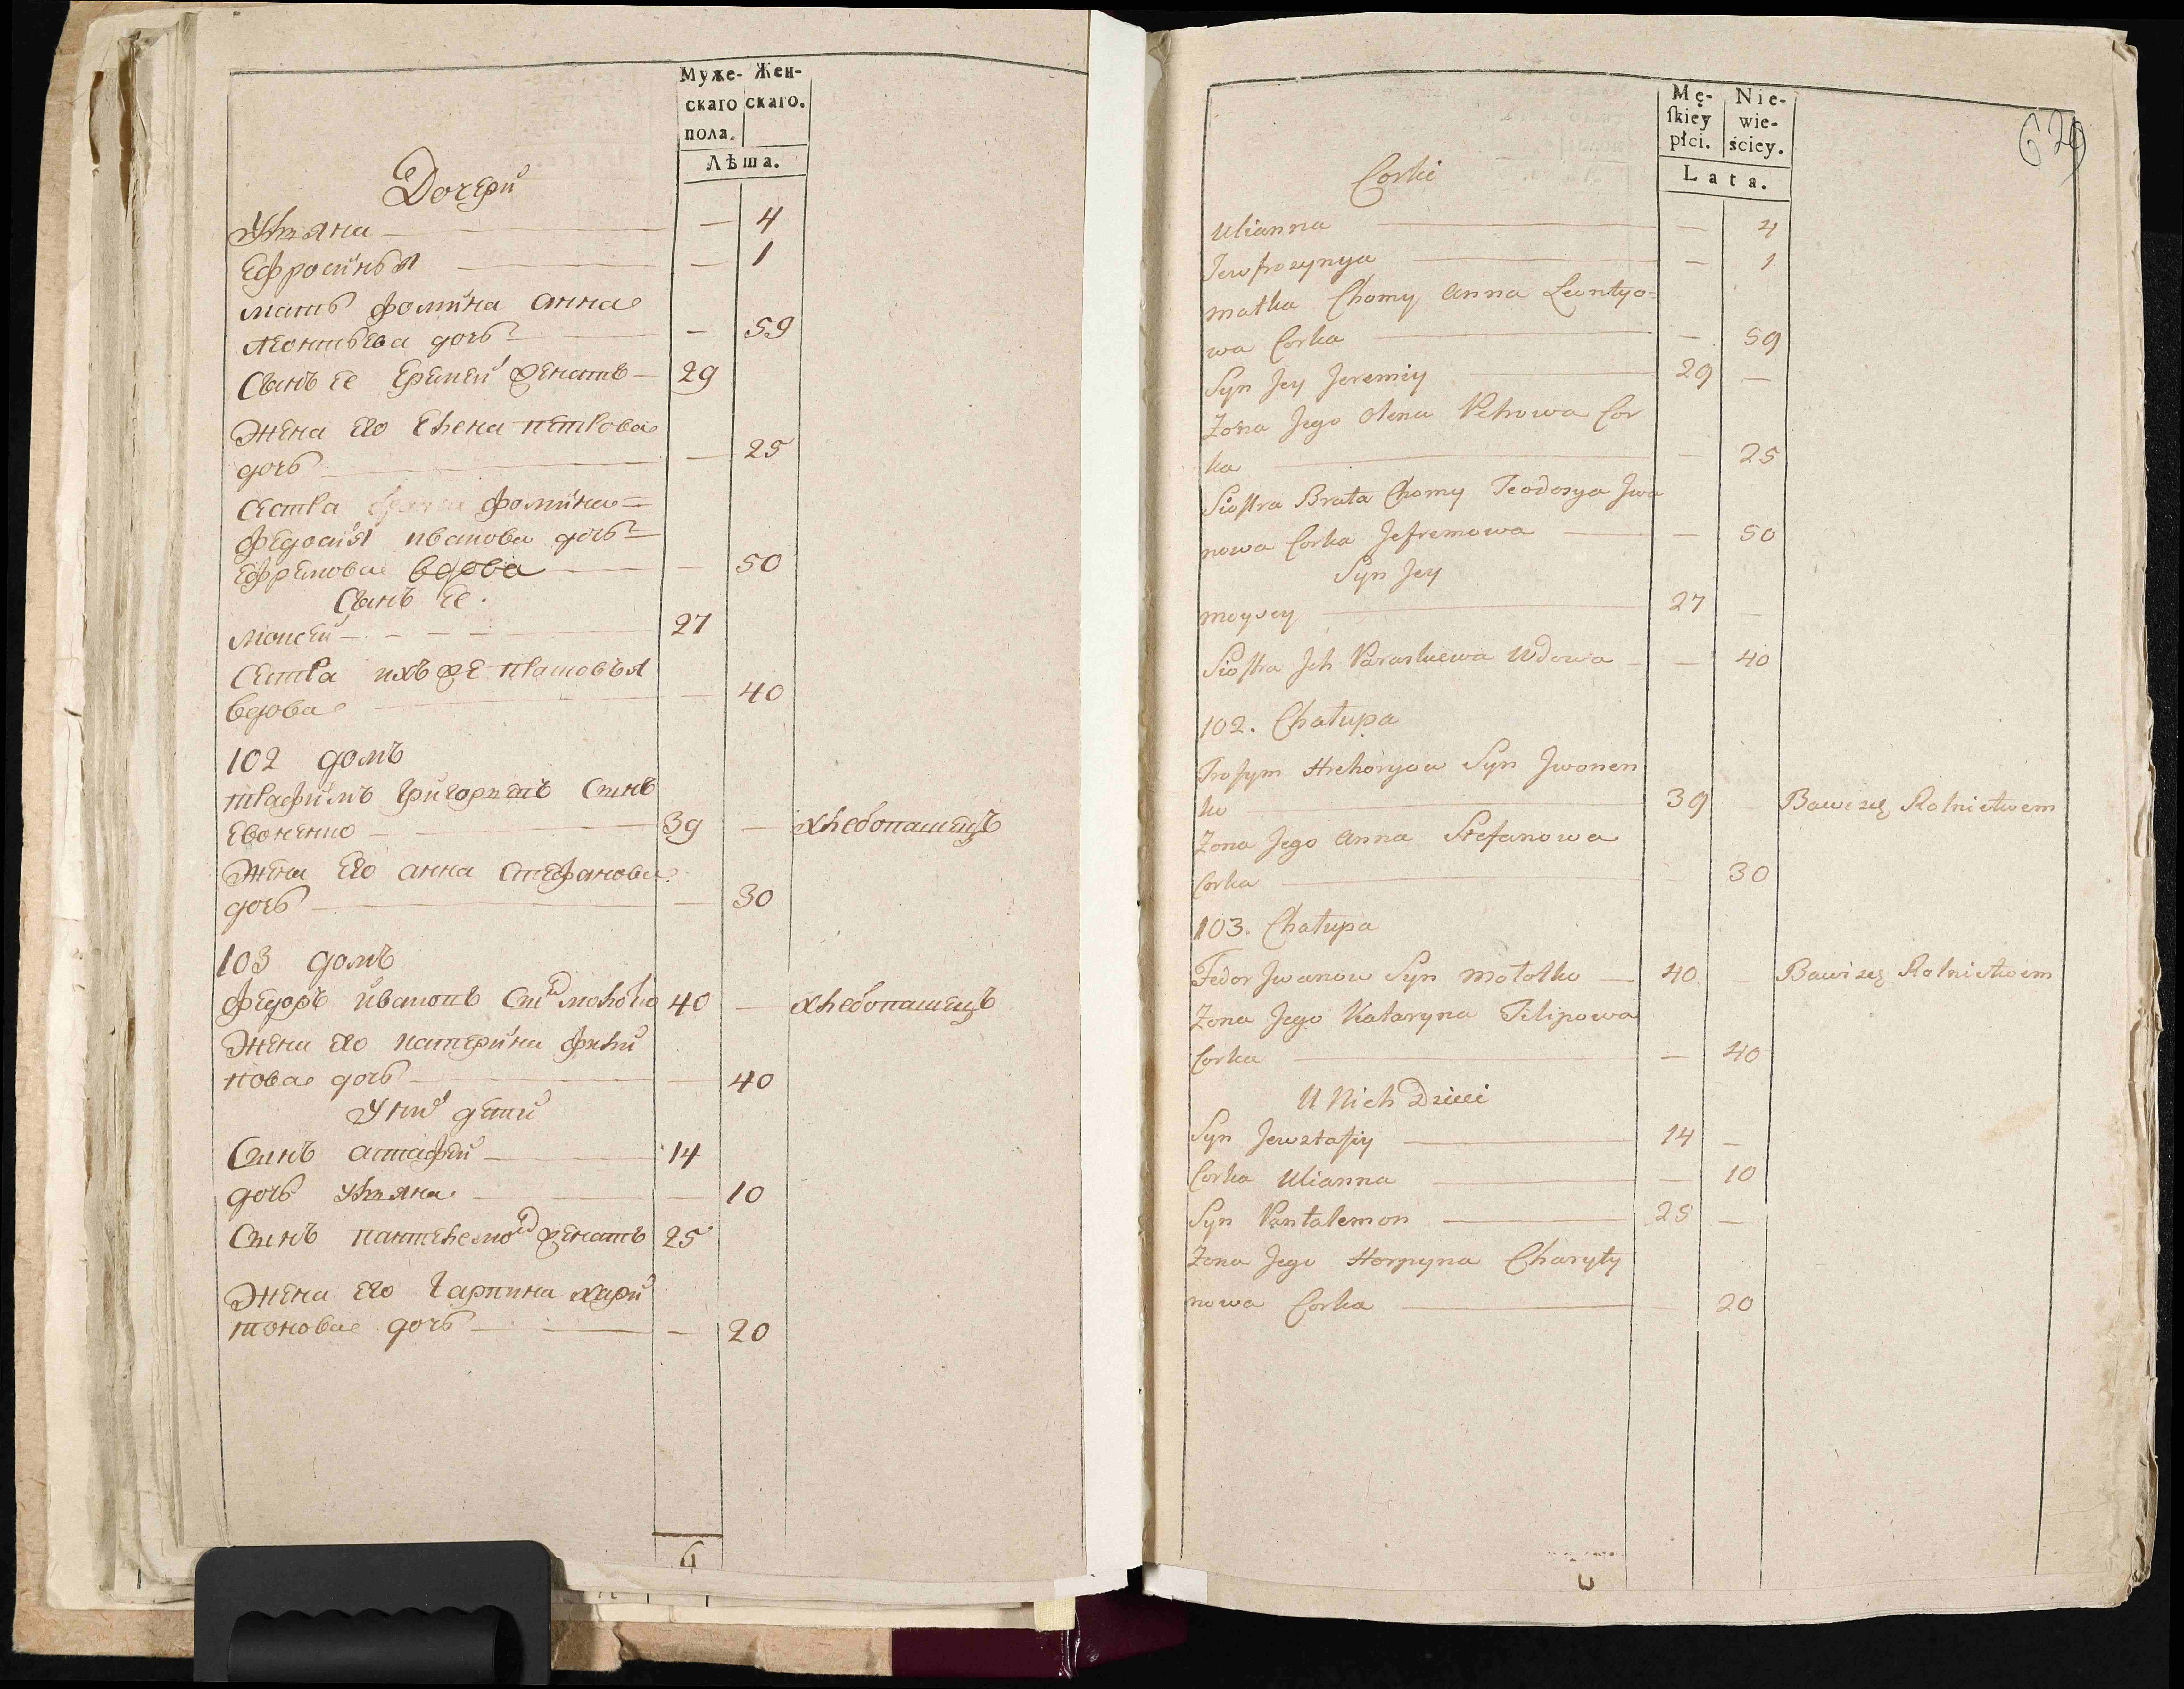 Муже- Жен-
скаго скаго.
пола.
Лѣта.
Дочери
Ульяна — 4
Ефросинья — 1
мать фомина анна
леонтьева дочь — 59
Сынъ ее Еремей женатъ — 29
Жена его Елена петрова
дочь — 25
Сестра фомина
федосия иванова дочь
Ефремова вдова — 50
Сынъ ее.
моисей — 27
Сестра ихъ же
вдова — 40
102 домъ
трафимъ григорьевъ Сынъ
Евоненко — 39 — хлебопашецъ
Жена его анна Стефанова
дочь — 30
103 домъ
федоръ ивановъ Сынъ молотко 40 — хлебопашецъ
Жена его катерина фили
пова дочь — 40
У них дети
Сынъ астафей — 14
дочь ульяна — 10
Сынъ пантелемонъ женатъ 25
Жена его гарпина хари
тонова дочь — 20
Mę- Nie-
ſkiey wie-
płci. ściey.
Lata.
629
Corki
Ulianna — 4
Jewfrozynya — 1
matka Chomy Anna Leontyo-
wa Corka — 59
Syn Jey Jeremiy — 29 —
Zona Jego Olena Petrowa Cor
ka — 25
Siostra Brata Chomy Teodosya Jwa
nowa Corka Jefremowa — 50
Syn Jey
moysey — 27 —
Siostra Jch Paraskiewa Wdowa — 40
102. Chałupa
Trofym Hrehoryow Syn Jwonen
ko — 39 — Bawi się Rolnictwem
Zona Jego Anna Stefanowa
Corka — 30
103. Chałupa
Fedor Jwanow Syn Mołotko — 40 — Bawi się Rolnictwem
Zona Jego Kataryna Filipowa
Corka — 40
U Nich Dzieci
Syn Jewstafiy — 14 —
Corka Ulianna — 10
Syn Pantalemon — 25 —
Zona Jego Horpyna Charyty
nowa Corka — 20